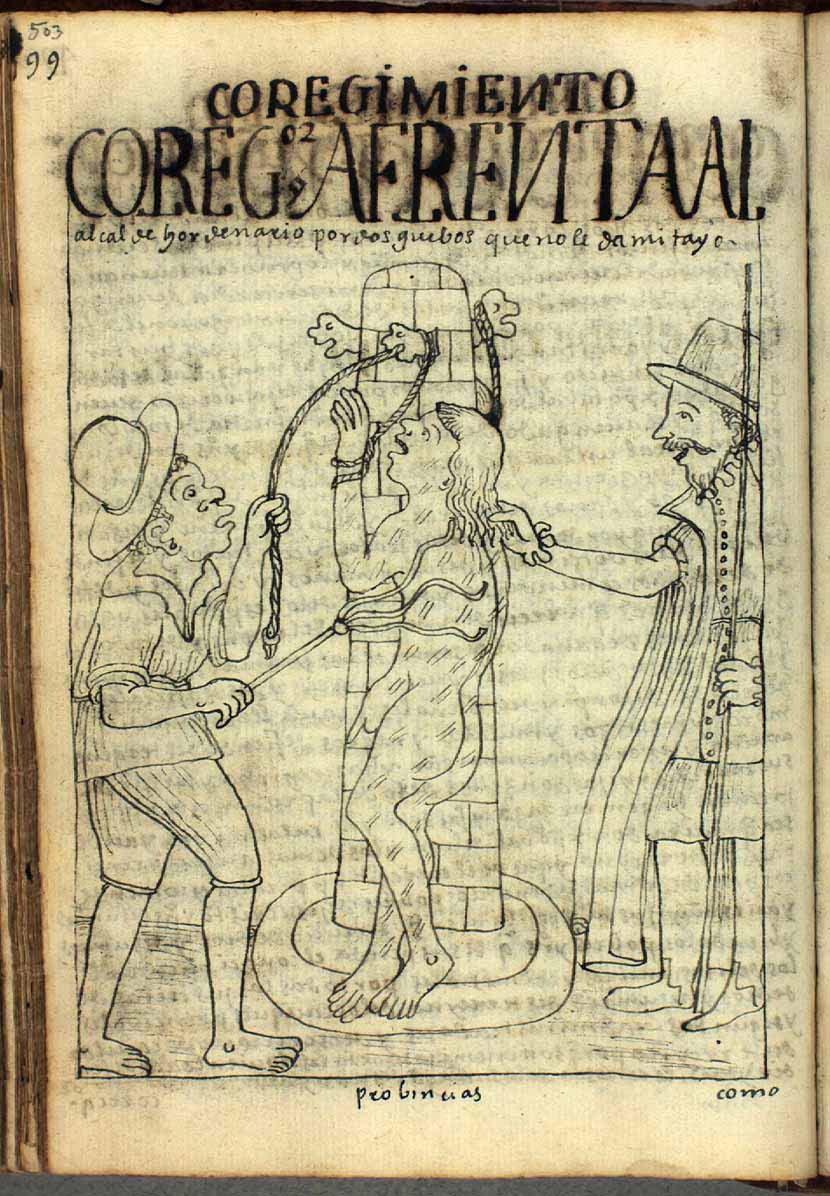 503
99
COREGIMIENTO
COREGor AFRENTA AL
alcalde hordenario por dos guebos que no le da mitayo.
probincias
como